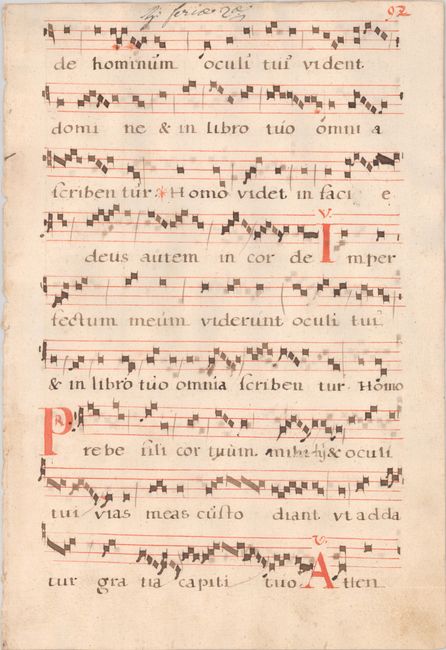 92
de hominum oculi tui vident
domi ne & in libro tuo omni a
scriben tur * Homo videt in faci e
deus autem in cor de V. Imper
fectum meum viderunt oculi tui
& in libro tuo omnia scriben tur. Homo
Prebe fili cor tuum mihi & oculi
tui vias meas custo diant vt adda
tur gra tia capiti tuo V. Atten